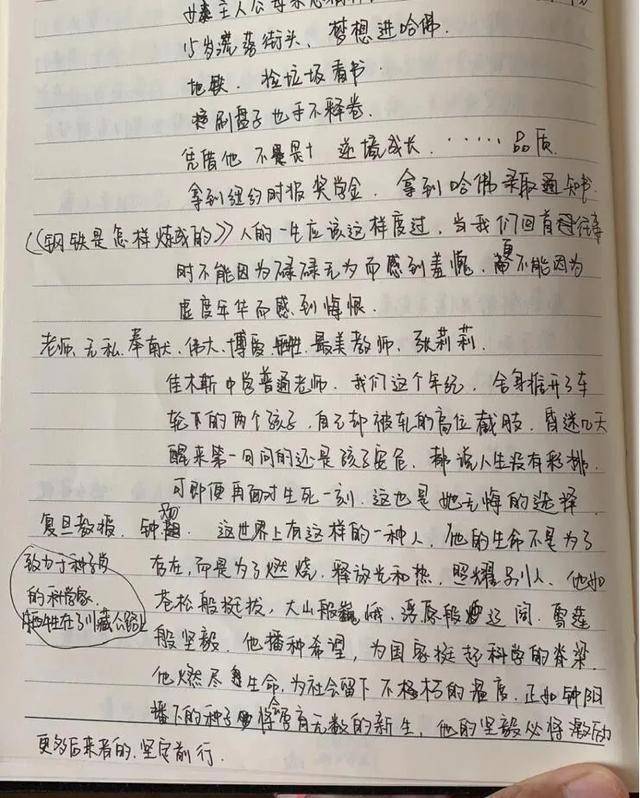 15岁流落街头、梦想进哈佛.
地铁. 捡垃圾看书.
刷盘子也手不释卷.
凭借他 不畏 逆境成长. ······ 品质.
拿到纽约时报奖学金. 拿到哈佛录取通知书.
《钢铁是怎样炼成的》人的一生应该这样度过, 当我们回首往事
时不能因为碌碌无为而感到羞愧, 更不能因为
虚度年华而感到悔恨.
老师. 无私. 奉献. 伟大. 博爱. 牺牲. 最美教师. 张莉莉.
佳木斯中学普通老师. 我们这个年纪, 舍身推开了车
轮下的两个孩子, 自己却被轧的高位截肢, 昏迷几天
醒来第一句问的还是孩子安危. 都说人生没有彩排.
可即便再面对生死一刻. 这也是她无悔的选择.
复旦教授. 钟扬. 这世界上有这样的一种人, 他的生命不是为了
致力于种子的科学家. 牺牲在了川藏公路上
存在, 而是为了燃烧, 释放光和热, 照耀别人. 他如
苍松般挺拔, 大山般巍峨, 草原般辽阔. 雪莲
般坚毅. 他播种希望, 为国家挺起科学的脊梁.
他燃尽生命, 为社会留下不朽的温度. 正如钟阳
播下的种子将会有无数的新生, 他的坚毅必将激励
更多后来者的. 坚定前行.